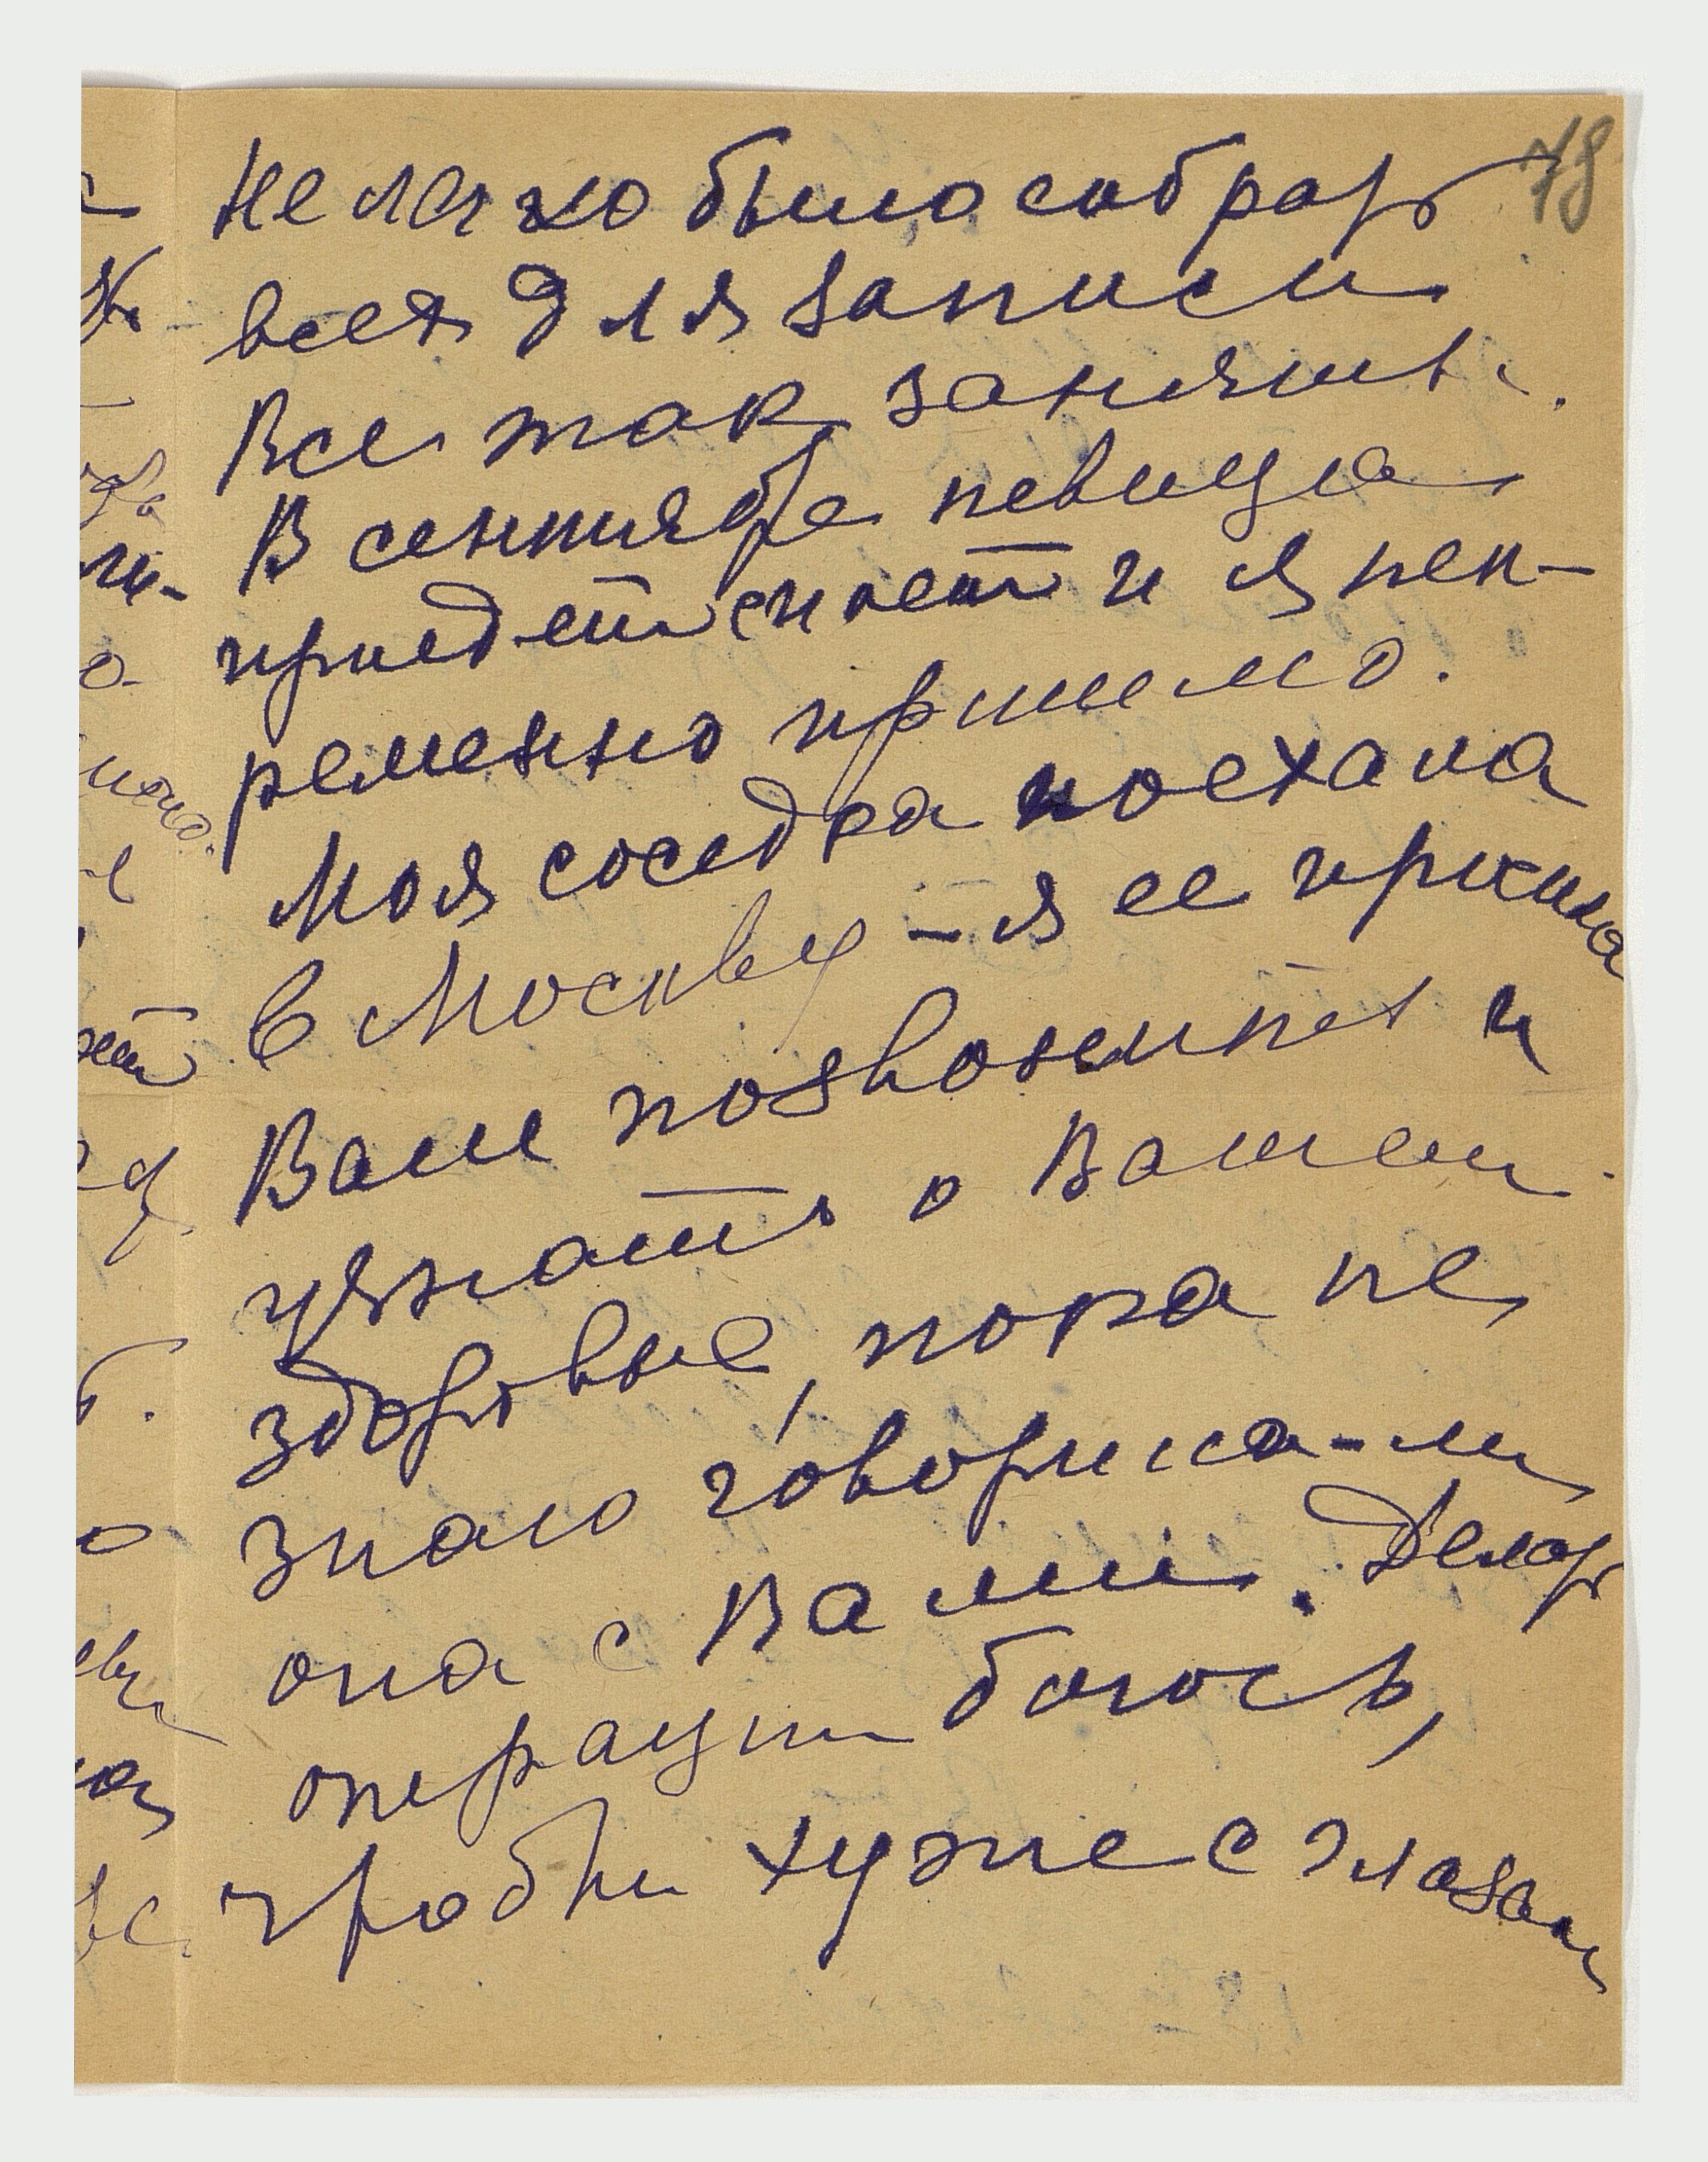 78
Нелегко было собрать
всех для записи
Все так заняты.
В сентябре певица
приедет споет и я неп-
ременно пришлю.
Моя соседка поехала
в Москву – я ее просила
Вам позвонить и
узнать о Вашем
здоровье, пока не
знаю говорила-ли
она с Вами. Делать
операции боюсь,
чтобы хуже с глазами